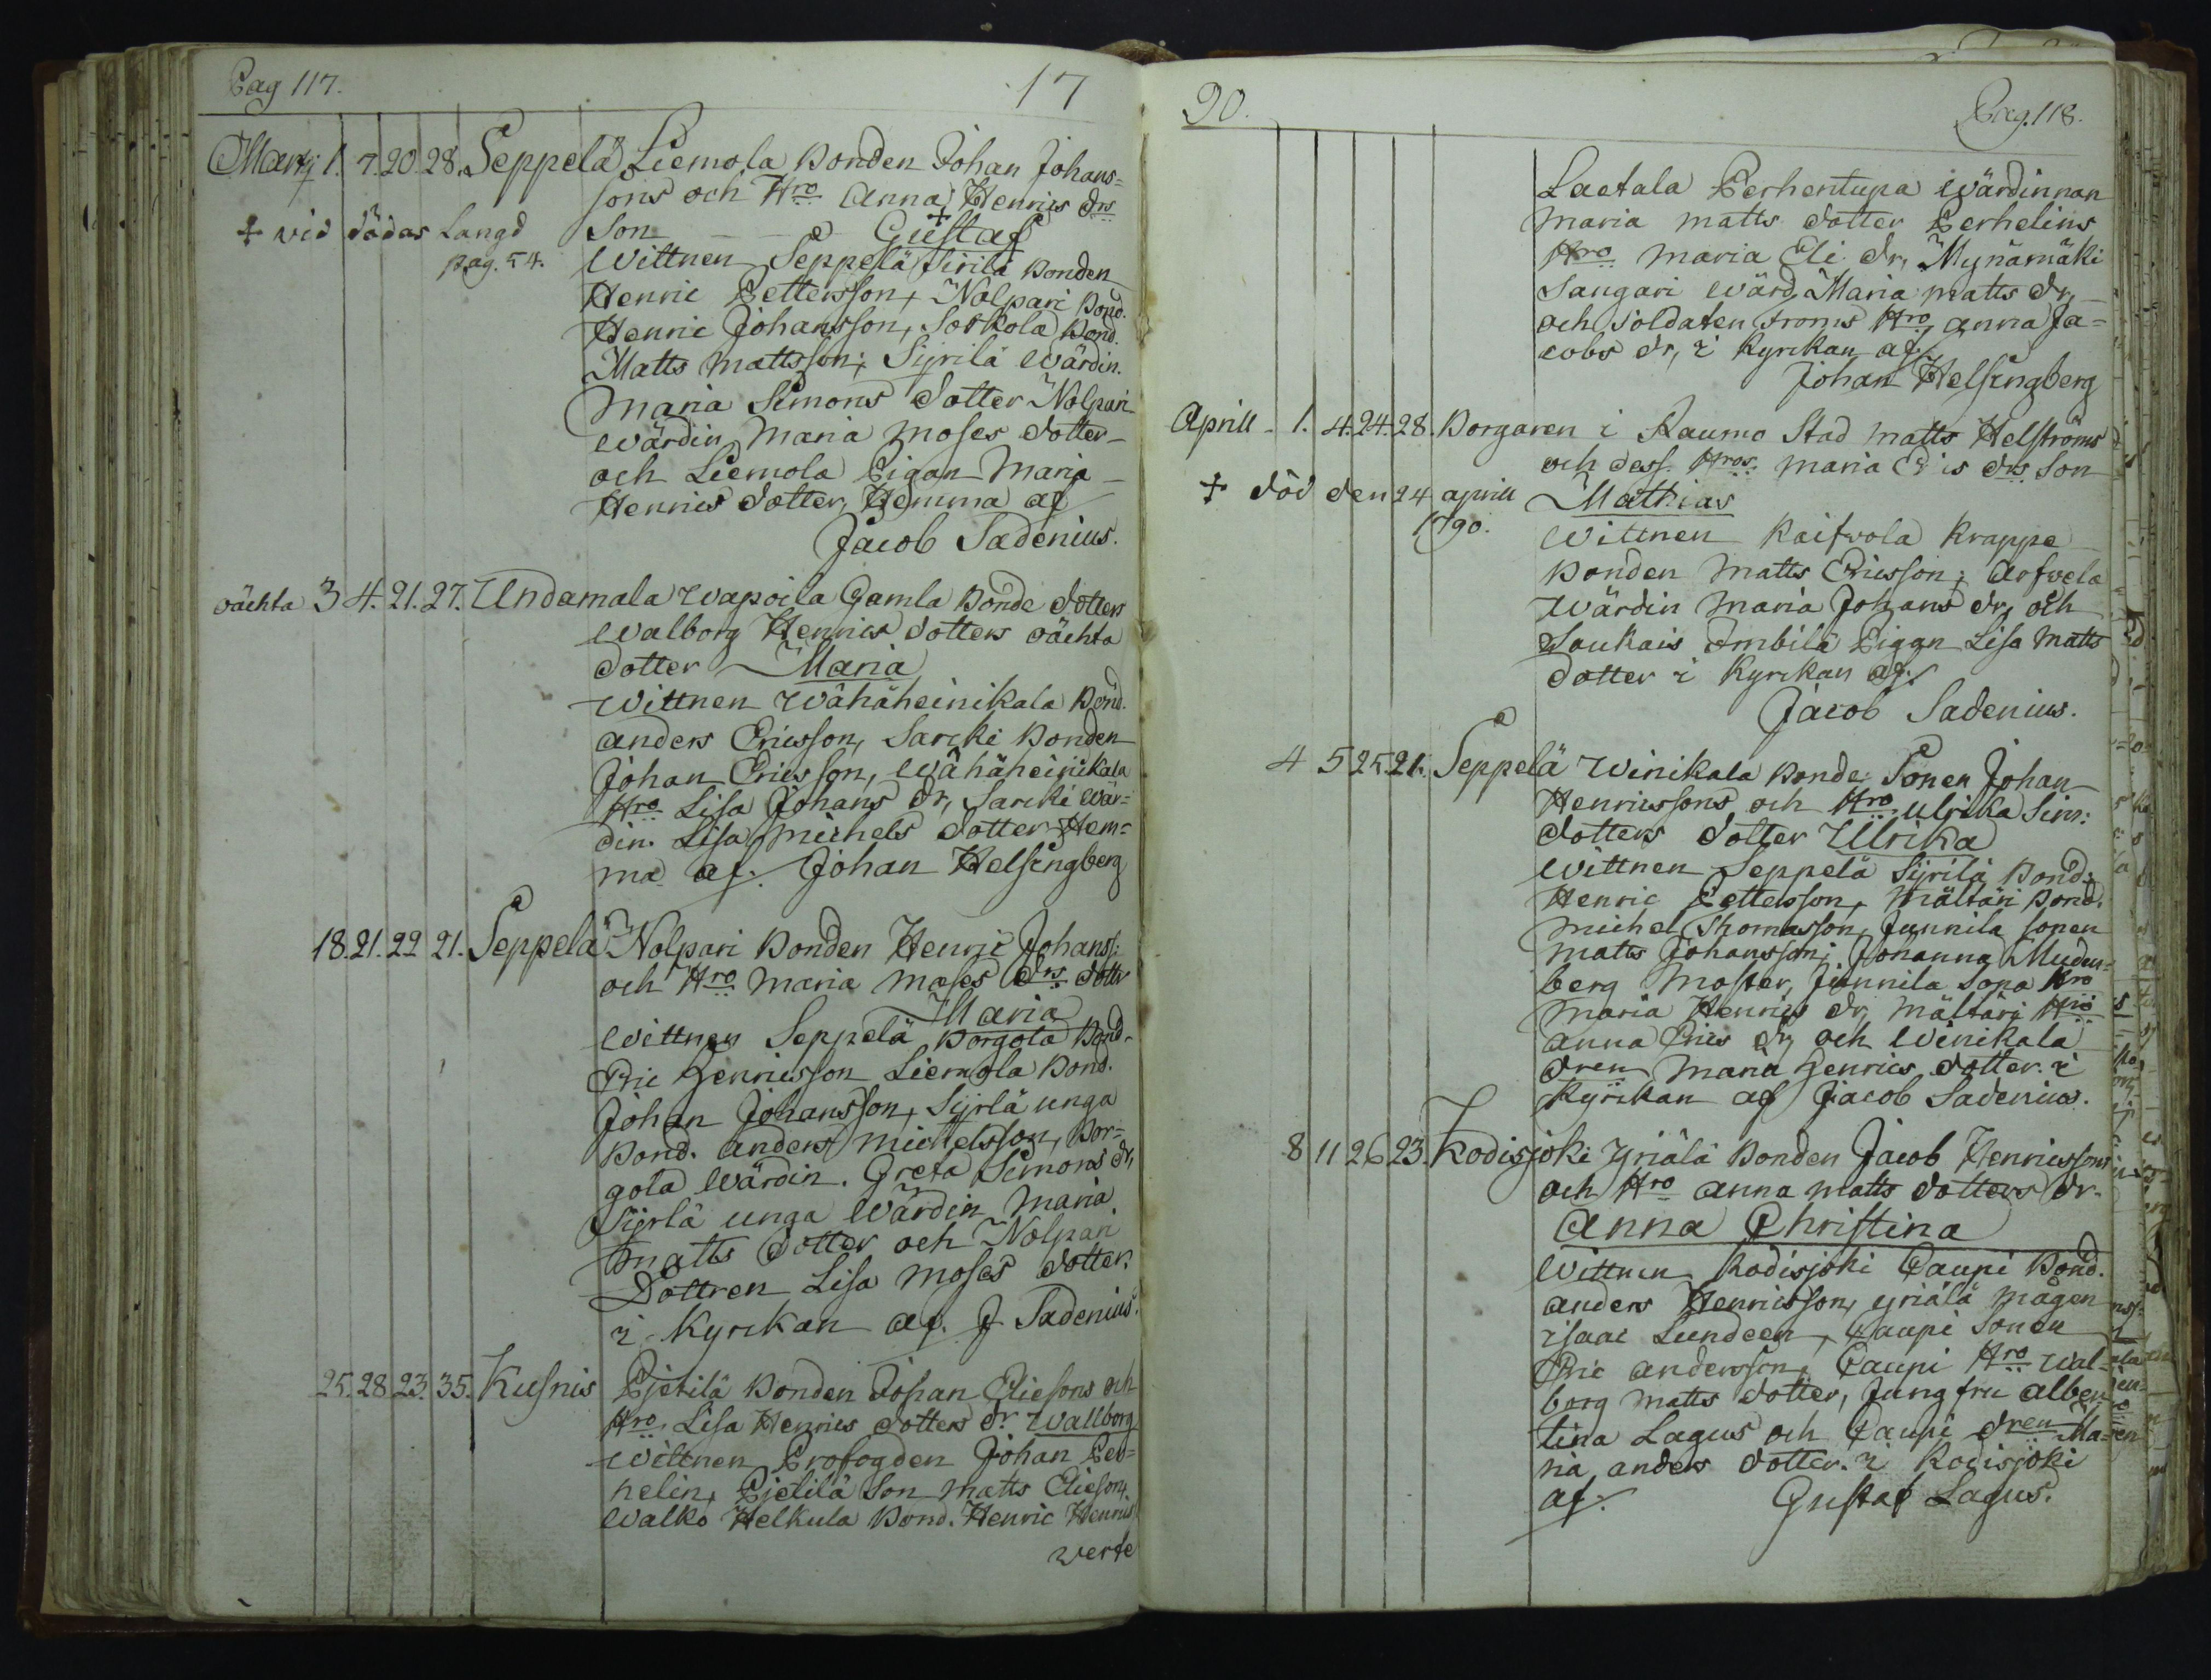 Pag 117.
17
Martij 1. 7. 20. 28. Seppelä Liemola Bonden Johan Johans=
sons och Hro Anna Henrics drs
Son Gustaf
✝ vid dödas Langd
pag. 54.
Wittnen Seppelä Sirilä Bonden
Henric Pettersson, Nolpari Bond.
Henric Johansson, Soukola Bond.
Matts Mattsson; Sijrilä Wärdin.
Maria Simons dotter Nolpari
Wärdin Maria Moses dotter
och Liemola Pigan Maria
Henrics dotter, Hemma af
Jacob Sadenius.
oächta 3 4. 21. 27. Undamala Wapoila Gamla Bonde dotters
Walborg Henrics dotters oächta
dotter Maria
Wittnen Wähäheinikala Bond.
Anders Ericsson, Sarcki Bonden
Johan Ericsson, Wähäheinikala
Hro Lisa Johans dr, Sarcki wär=
din. Lisa Michels dotter Hem=
ma af. Johan Helsingberg
18. 21. 22 21. Seppelä Nolpari Bonden Henric Johanss:
och Hro Maria Moses drs dotter
Maria
Wittnen Seppelä Borgola Bond.
Eric Henricsson Liemola Bond.
Johan Johansson, Sijrlä unga
Bond. Anders Michelsson, Bor=
gola Wärdin. Greta Simons dr,
Sijrlä unga Wärdin Maria
Matts dotter och Nolpari
Dottren Lisa Moses dotter.
i Kyrckan af. J Sadenius.
25. 28. 23. 35. Kusnis Pjetilä Bonden Johan Eliesons och
Hro Lisa Henrics dotters dr. Wallborg
Wittnen Profogden Johan Per=
helin, Pjetilä Son Matts Elieson,
Walko Helkula Bond. Henric Henrics
verte
90.
Pag. 118.
Laetala Perhentupa Wärdinnan
Maria Matts dotter Perhelins
Hro Maria Eli dr, Mynämäki
Sangari Wärd, Maria Matts dr,
och Soldaten Froms Hro Anna Ja=
cobs dr, i Kyrckan af.
Johan Helsingberg
Aprill 1. 4. 24. 28. Borgaren i Raumo Stad Matts Helströms
och dess Hros Maria Er ics drs Son
✝ död den 24 aprill
1790.
Mathias
Wittnen Kaifwola Krappe
Bonden Matts Ericsson; Arfwela
Wärdin Maria Johans dr, och
Soukais Ambilä Pigan Lisa Matts
dotter i Kyrckan af.
Jacob Sadenius.
4 5 25. 21. Seppelä Winikala Bonde Sonen Johan
Henricssons och Hro Ulrika Sim:
dotters dotter Ulrika
Wittnen Seppelä Sijrilä Bond:
Henric Pettersson, Mältäri Bond.
Michel Thomasson, Junnila sonen
Matts Johansson; Johanna Muden=
berg Moster, Junnila Sona Hro
Maria Henrics dr, Mältäri Hro
Anna Erics dr, och Winikala
dren Maria Henrics dotter. i
Kyrckan af Jacob Sadenius.
8 11 26 23. Kodisjoki Yriälä Bonden Jacob Henricssons
och Hro Anna Matts dotters dr.
Anna Christina
Wittnen Kodisjoki Paupi Bond.
Anders Henricsson, Yriälä mågen
Isaac Lundeen, Paupi Sonen
Eric Andersson, Paupi Hro Wal=
borg Matts dotter, Jungfru Alben=
tina Lagus och Paupi dren Ma=
ria Anders dotter. i Kodisjoki
af. Gustaf Lagus.